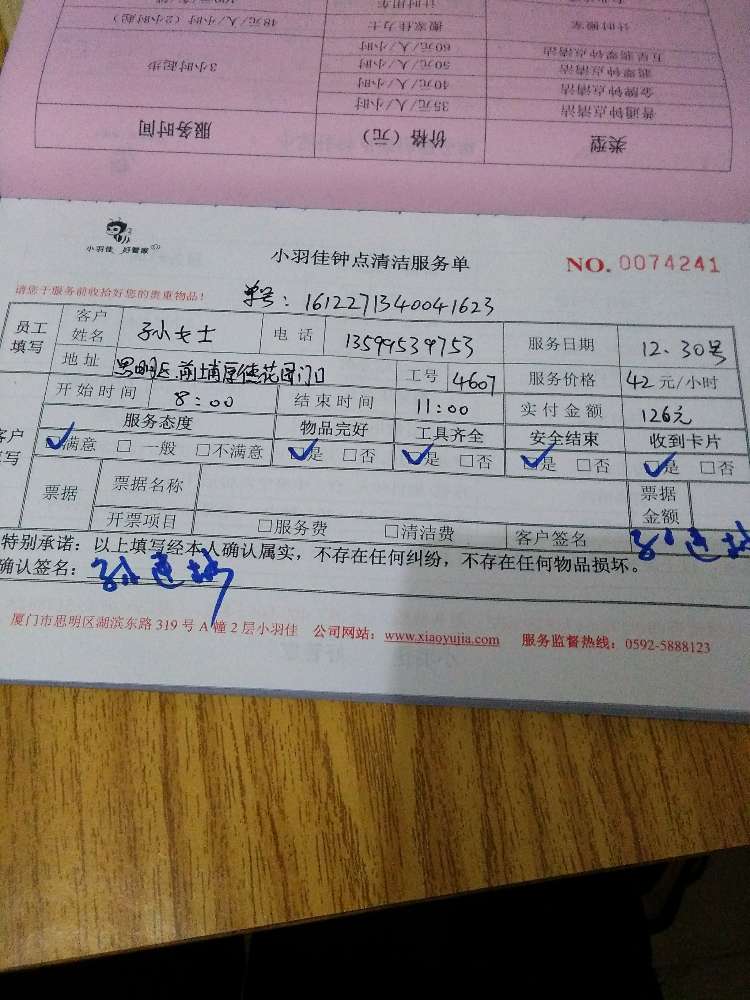 计时搬家 搬家佳力士 48元/人/小时(2小时起)
五星翡翠钟点清洁 60元/人/小时
翡翠钟点清洁 50元/人/小时
金牌钟点清洁 40元/人/小时
普通钟点清洁 35元/人/小时
3小时起步
类型 价格（元） 服务时间
小羽佳 好管家
小羽佳钟点清洁服务单
NO. 0074241
请您于服务前收拾好您的贵重物品！
单号：1612271340041623
员工填写 客户姓名 孙女士 电话 13599539753 服务日期 12.30号
地址 思明区前埔厚德花园门口 工号 4607 服务价格 42元/小时
开始时间 8:00 结束时间 11:00 实付金额 126元
客户填写 服务态度 物品完好 工具齐全 安全结束 收到卡片
☑满意 □一般 □不满意 ☑是 □否 ☑是 □否 ☑是 □否 ☑是 □否
票据 票据名称 票据金额
开票项目 □服务费 □清洁费 客户签名
特别承诺：以上填写经本人确认属实，不存在任何纠纷，不存在任何物品损坏。
确认签名：
厦门市思明区湖滨东路 319 号 A 幢 2 层小羽佳 公司网站：www.xiaoyujia.com 服务监督热线：0592-5888123